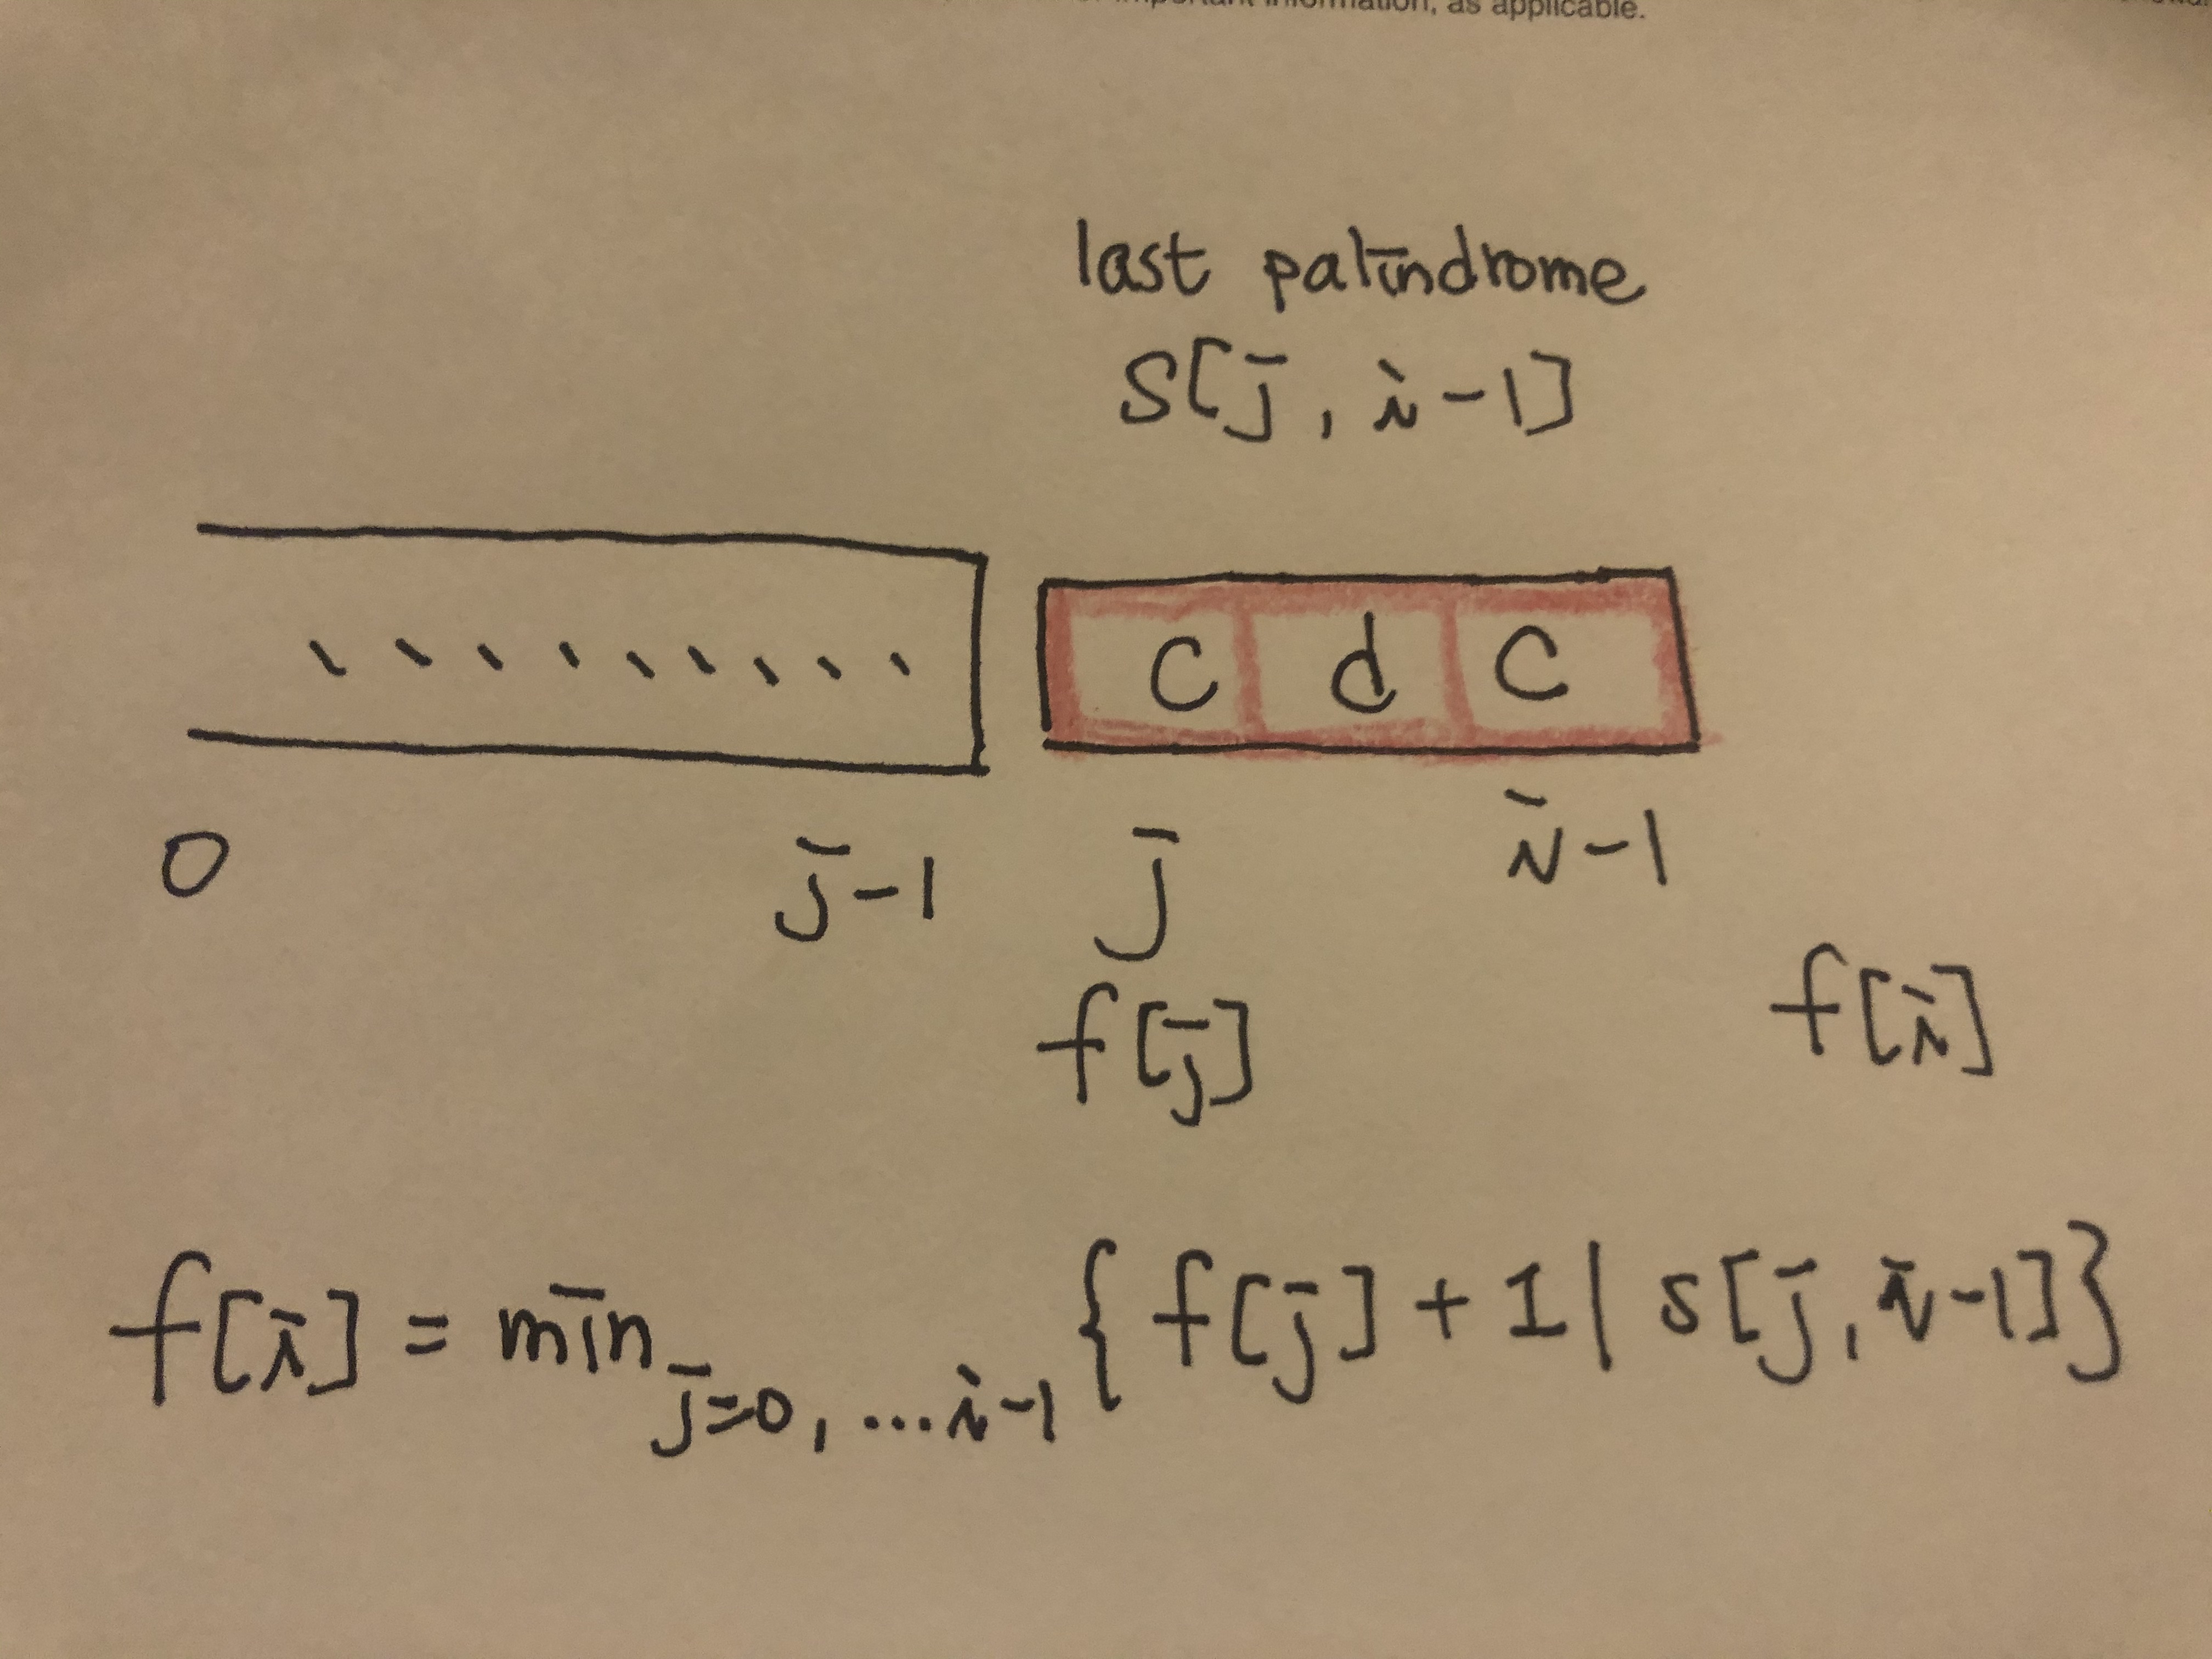 important information, as applicable.
last palindrome
S[j, i-1]
c d c
0 j-1 j i-1
f[j] f[i]
f[i] = min j=0, ...i-1 { f[j] + 1 | s[j, i-1] }